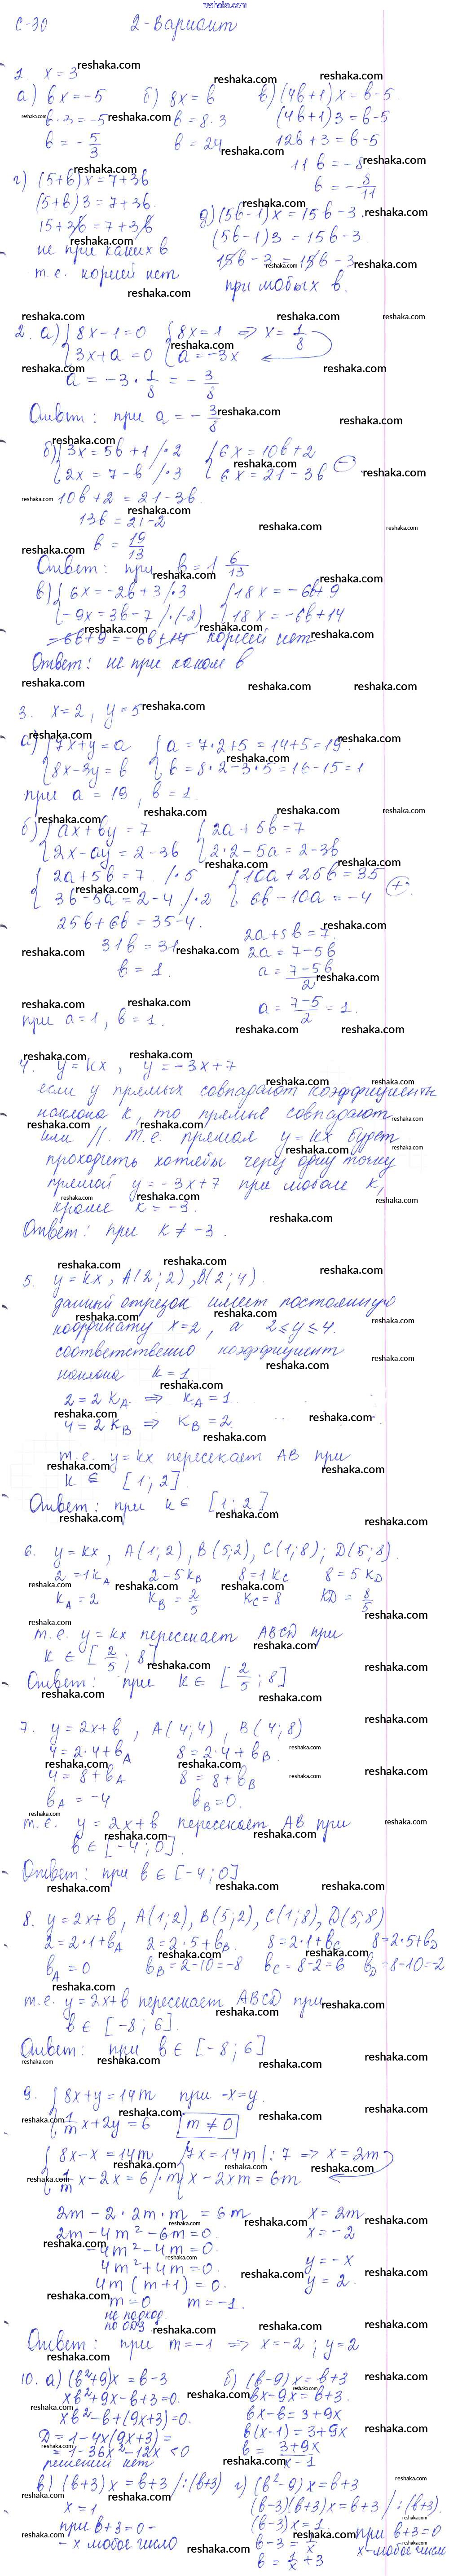 reshaka.com
С-30 2-Вариант
1. x = 3
а) 6x = -5 б) 8x = b в) (4b+1)x = b-5
b·3 = -5 b = 8·3 (4b+1)3 = b-5
b = -5/3 b = 24 12b+3 = b-5
11b = -8
b = -8/11
г) (5+b)x = 7+3b
(5+b)3 = 7+3b д) (5b-1)x = 15b-3
15+3b = 7+3b (5b-1)3 = 15b-3
не при каких b 15b-3 = 15b-3
т.е. корней нет при любых b.
2. а) { 8x-1=0 { 8x=1 => x = 1/8
3x+a=0 a=-3x
a = -3·1/8 = -3/8
Ответ: при a = -3/8
б) { 3x=5b+1 /·2 { 6x=10b+2
2x=7-b /·3 6x=21-3b
10b+2 = 21-3b
13b = 21-2
b = 19/13
Ответ: при b = 1 6/13
в) { 6x = -2b+3 /·3 { 18x = -6b+9
-9x = 3b-7 /·(-2) 18x = -6b+14
-6b+9 = -6b+14 корней нет
Ответ: не при каком b
3. x=2, y=5
а) { 7x+y=a { a=7·2+5=14+5=19
8x-3y=b b=8·2-3·5=16-15=1
при a=19, b=1.
б) { ax+by=7 { 2a+5b=7
2x-ay=2-3b 2·2-5a=2-3b
{ 2a+5b=7 /·5 { 10a+25b=35
3b-5a=2-4 /·2 6b-10a=-4
25b+6b=35-4.
31b=31 2a+5b=7
b=1. 2a=7-5b
a=(7-5b)/2
a=(7-5)/2=1.
при a=1, b=1.
4. y=kx, y=-3x+7
если у прямых совпадают коэффициенты
наклона k, то прямые совпадают
или //. т.е. прямая y=kx будет
проходить хотябы через одну точку
прямой y=-3x+7 при любом k,
кроме k=-3.
Ответ: при k≠-3.
5. y=kx, A(2;2), B(2;4).
данный отрезок имеет постоянную
координату x=2, а 2≤y≤4.
соответственно коэффициент
наклона k=1
2=2k_A => k_A=1.
4=2k_B => k_B=2
т.е. y=kx пересекает AB при
k∈ [1;2].
Ответ: при k∈ [1;2]
6. y=kx, A(1;2), B(5;2), C(1;8); D(5;8).
2=1k_A 2=5k_B 8=1k_C 8=5k_D
k_A=2 k_B=2/5 k_C=8 k_D=8/5
т.е. y=kx пересекает ABCD при
k∈[2/5;8]
Ответ: при k∈[2/5;8]
7. y=2x+b, A(4;4), B(4;8)
4=2·4+b_A 8=2·4+b_B
4=8+b_A 8=8+b_B
b_A=-4 b_B=0.
т.е. y=2x+b пересекает AB при
b∈[-4;0].
Ответ: при b∈[-4;0]
8. y=2x+b, A(1;2), B(5;2), C(1;8), D(5;8)
2=2·1+b_A 2=2·5+b_B 8=2·1+b_C 8=2·5+b_D
b_A=0 b_B=2-10=-8 b_C=8-2=6 b_D=8-10=-2
т.е. y=2x+b пересекает ABCD при
b∈[-8;6].
Ответ: при b∈[-8;6]
9. { 8x+y=14m при -x=y.
1/m x+2y=6 m≠0
{ 8x-x=14m { 7x=14m |:7 => x=2m
1/m x-2x=6 /·m x-2xm=6m
2m-2·2m·m=6m x=2m
2m-4m²-6m=0. x=-2
-4m²-4m=0. y=-x
4m²+4m=0. y=2.
4m(m+1)=0.
m=0 m=-1.
не подход.
по ОДЗ
Ответ: при m=-1 => x=-2; y=2
10. а) (b²+9)x=b-3 б) (b-9)x=b+3
xb²+9x-b+3=0. bx-9x=b+3.
xb²-b+(9x+3)=0. bx-b=3+9x
D=1-4x(9x+3)= b(x-1)=3+9x
=1-36x²-12x<0 b=(3+9x)/(x-1)
решений нет
в) (b+3)x=b+3 /:(b+3) г) (b²-9)x=b+3
x=1 (b-3)(b+3)x=b+3 /:(b+3).
при b+3=0- (b-3)x=1 при b+3=0
-x любое число b-3=1/x x-любое число
b=1/x+3